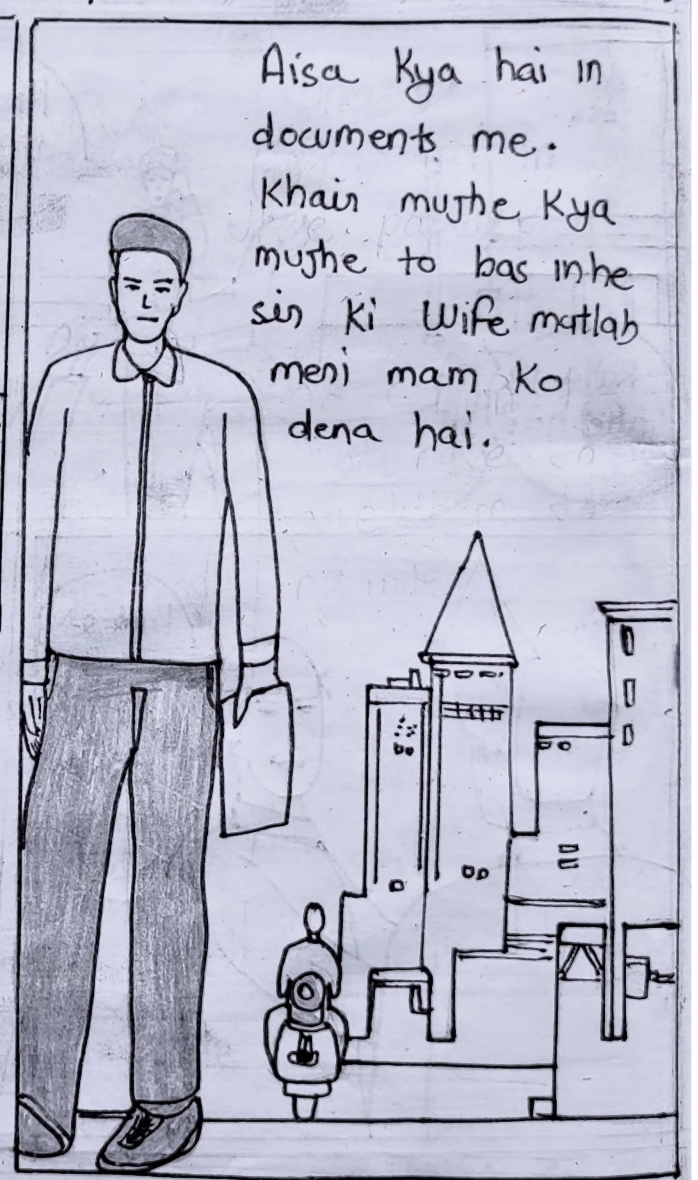 Aisa Kya hai in
documents me.
Khair mujhe Kya
mujhe to bas inhe
sir Ki Wife matlab
meri mam Ko
dena hai.